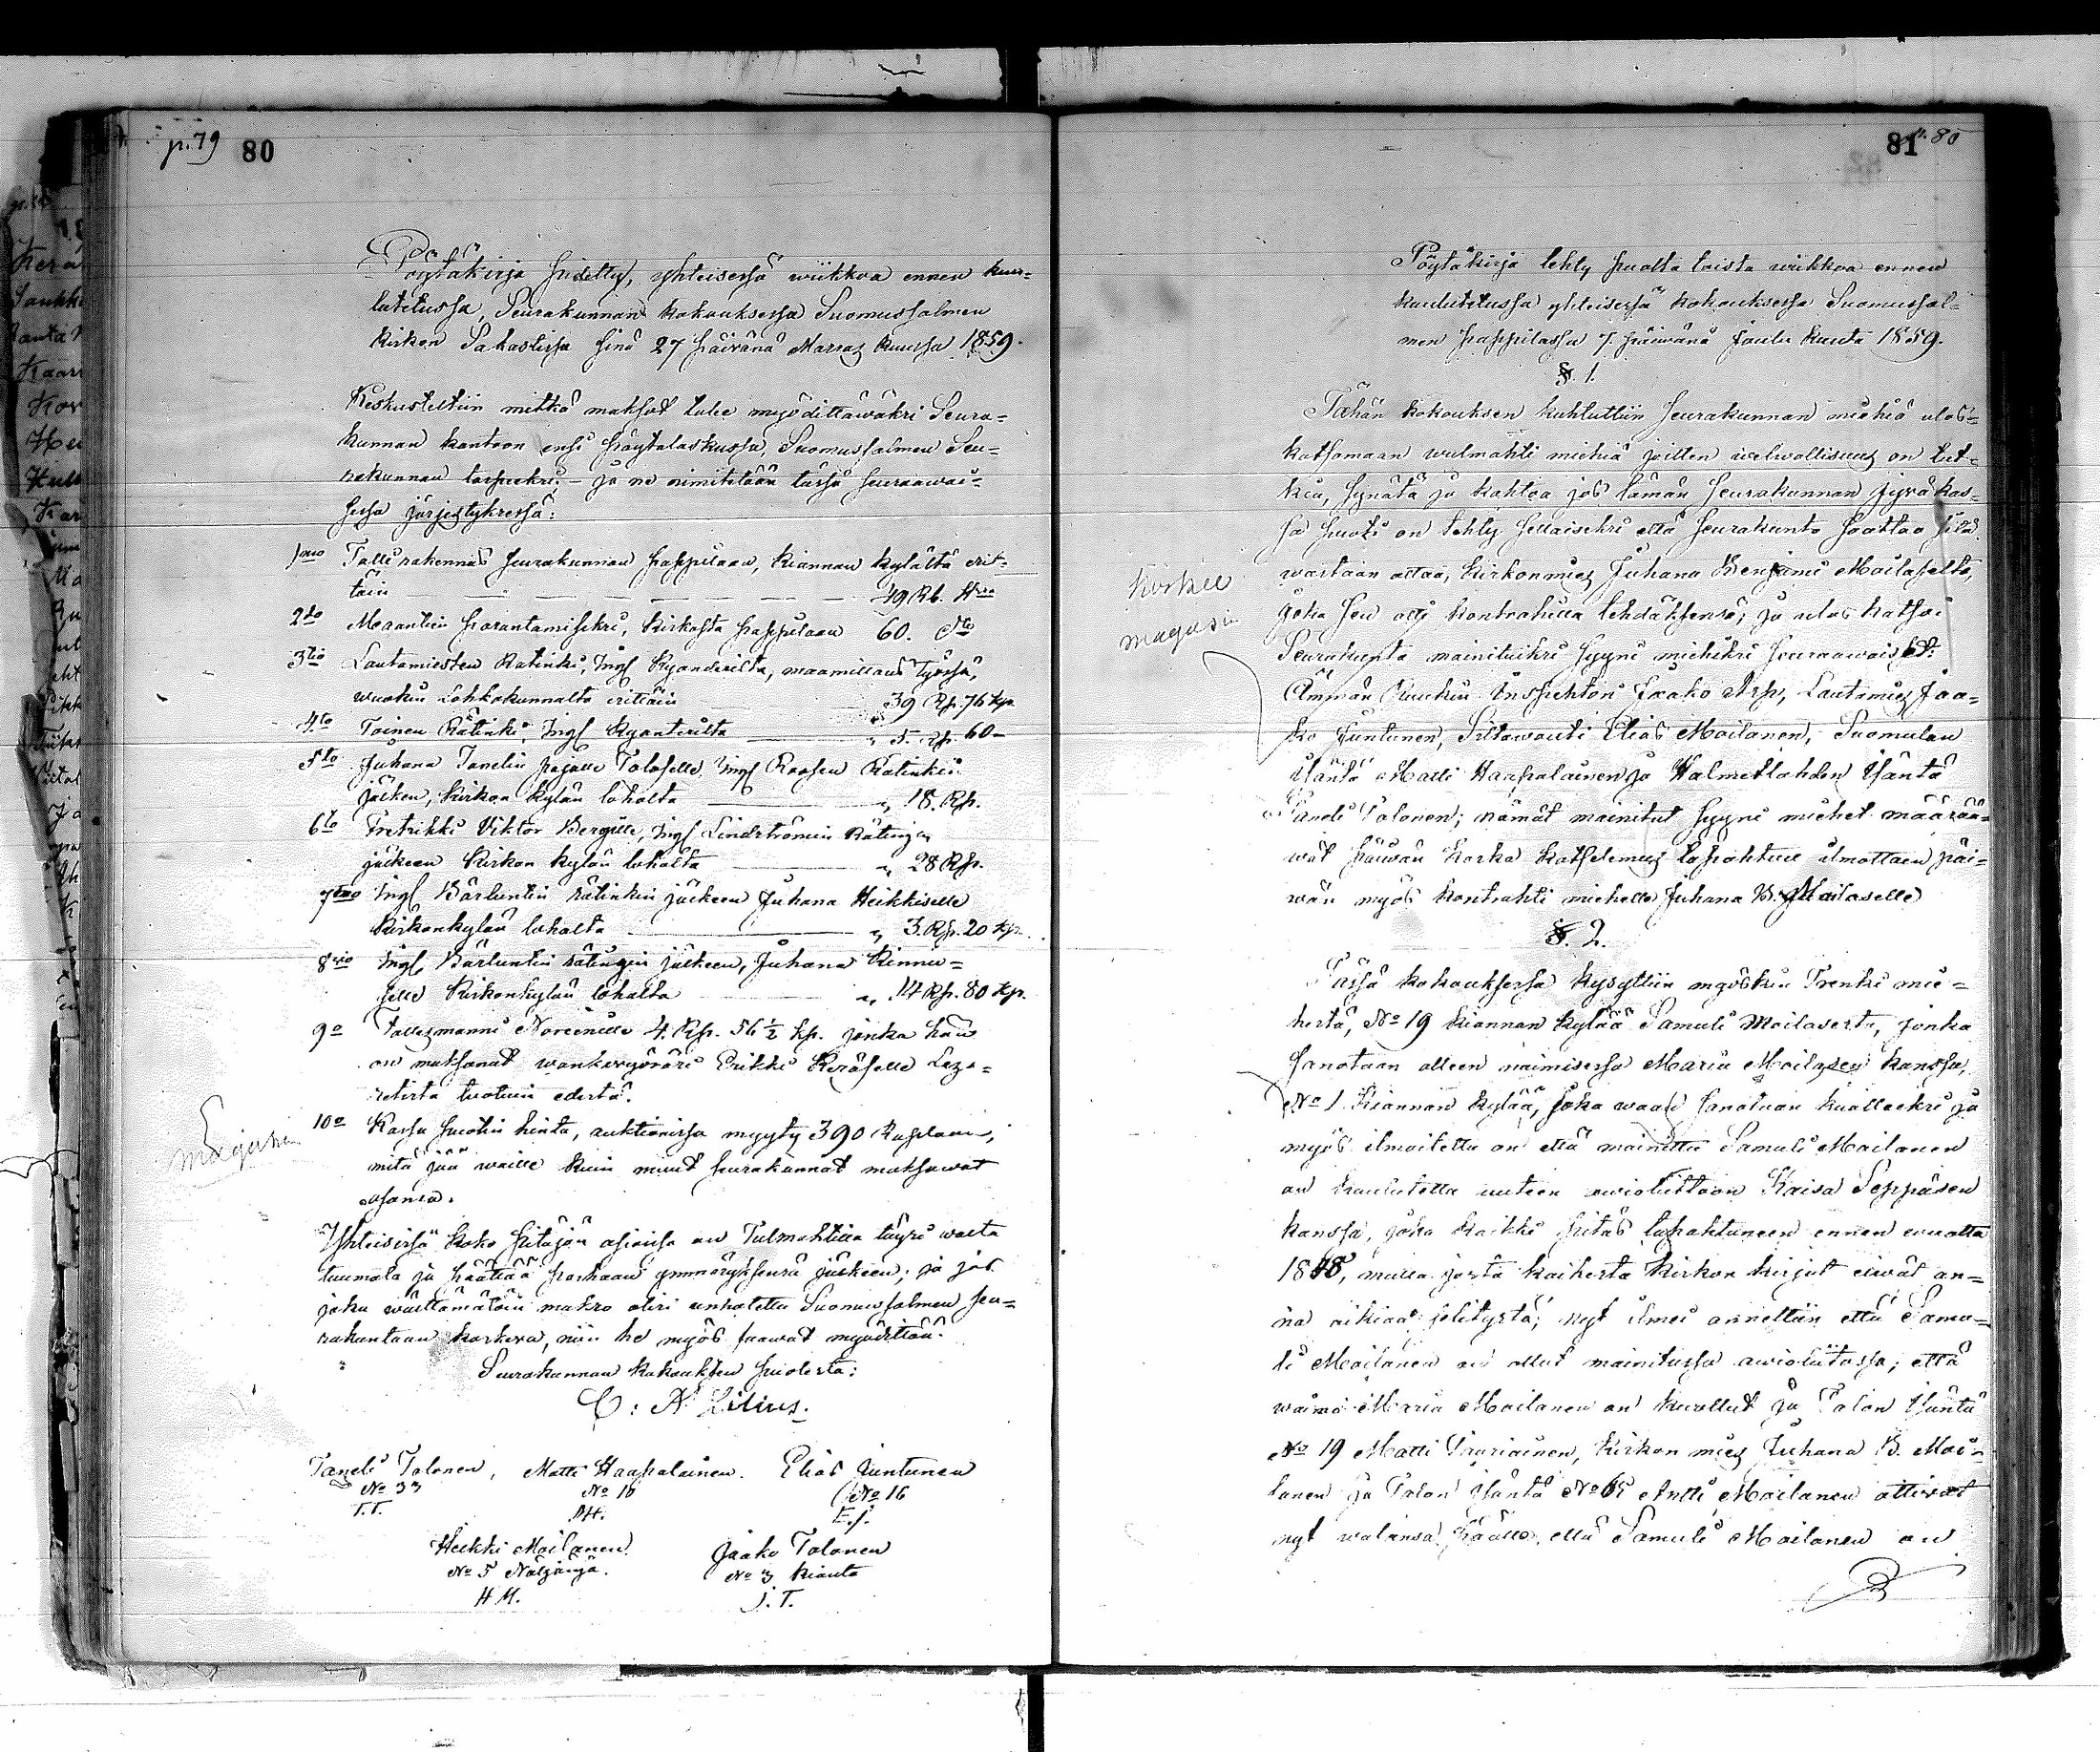 p. 79 80
Pöytäkirja pidetty, yhteisessä wiikkoa ennen kuu-
lutetussa, Seurakunnan kokouksessa Suomussalmen
kirkon Sakastissa sinä 27 päivänä Marras kuussa 1859.
Keskusteltiin mitkä maksot tulee myödittäwäksi Seura-
kunnan kantoon ensi pöytälaskussa, Suomussalmen Seu-
rakunnan tarpeeksi. – ja ne nimitetään tässä seuraawai-
sessa järjestyksessä:
1mo Talli rakennus seurakunnan pappilaan, Kiannan kylältä erit-
täin — — — — — 49 Rb. Hra
2do Maantien parantamiseksi, kirkosta pappilaan 60. Dto
3tio Lautamiesten Ratinki, Ingl Kyanderilta, maamittaus työssä,
wuokin Lohkokunnalta erittäin 39 Rp. 76 kp.
4to Toinen Rätinki, Ingl Kyanterilta — „ 5. Rp. 60 –
5to Juhana Tanelin pojalle Toloselle, Ingl Roosen Ratinkin
jälken, kirkon kylän lohalta — „ 18. Rp.
6to Fretrikki Viktor Bergille, Ingl Lindströmin Rätingin
jälkeen Kirkon kylän lohalta — „ 28 Rp.
7mo Ingl Bärluntin rätinkin jälkeen Juhana Heikkiselle
Kirkonkylän lohalta — „ 3. Rp. 20 kp.
8vo Ingl Bärluntin rätingin jälkeen, Juhana Kinnu-
selle Kirkonkylän lohalta — „ 14 Rp. 80 kp.
9o Fallesmanni Noreinille 4. Rp. 56 ½ kp. jonka hän
on maksanut wankarynäri Erikki Keräselle Laza-
retista tuotuin edestä.
Magasin
10o Kassa puotin hinta, auktionissa myyty 390 Ruplaan,
mitä jää waille kuin muut seurakunnat maksawat
osansa.
Yhteisissä koko pitäjän asioissa on Tulmahtilla täysi walta
tuumata ja päättää parhaan ymmäryksensä jälkeen; ja jos
joku wälttämätöin makso olisi unhotettu Suomussalmen seu-
rakuntaan koskewa, niin he myös saawat myödittää.
Seurakunnan kokouksen puolesta:
C: A Lilius.
Taneli Tolonen, Matti Haapalainen. Elias Juntunen
No 33 No 18 No 16
T.T. M.H. E.J.
Heikki Moilanen. Jaako Tolonen
No 5 Näljängä. No 3 Kianta
H M. J. T.
81 p. 80
Pöytäkirja tehty puolta toista wiikkoa ennen
kuulutetussa yhteisessä kokouksessa Suomussal-
men pappilassa 7. päiwänä Joulu kuuta 1859.
§. 1.
Tähän kokouksen kuhtuttiin seurakunnan miehiä ulos-
katsomaan wulmahti miehiä joitten welwollisuus on tut-
kia, synätä ja kahtoa jos tämän seurakunnan Jywä kas-
sa puoti on tehty sellaiseksi että seurakunta saattaa sitä
wastaan ottaa, kirkonmies Juhana Benjami Moilaselta,
Korkee
magasin
joka sen otti kontrahilla tehdäksensä; ja ulos katsoi
Seurakunta mainituiksi syyni miehiksi seuraawaiset:
Ämmän Ruukin Inspehtori Jaako Arp, Lautamies Jaa-
ko Juntunen, Siltawouti Elias Moilanen, Suomulan
Isäntä Matti Haapalainen ja Halmetlahden Isäntä
Taneli Tolonen; nämät mainitut syyni miehet määrää-
wät päiwän koska katselemus tapahtuu ilmottaen päi-
wän myös kontrahti miehelle Juhana B. Moilaselle
§. 2.
Tässä kokouksessa kysyttiin myöskin Trenki mie-
hestä, No 19 Kiannan kylää Samuli Moilasesta, jonka
sanotaan olleen naimisessa Maria Moilasen kanssa,
No 1 Kiannan kylää, joka waali sanotaan kuolleeksi ja
myös ilmoitettu on että mainittu Samuli Moilanen
on kuulutettu uuteen awioliittoon Kaisa Seppäsen
kanssa, joka kaikki pitäs tapahtuneen ennen wuotta
1848, mutta josta kaikesta Kirkon kirjat eiwät an-
na oikiaa selitystä; nyt ilmi annettiin että Samu-
li Moilanen on ollut mainitussa awioliitossa; että
waimo Maria Moilanen on kuollut ja Talon Isäntä
No 19 Matti Lauriainen, Kirkon mies Juhana B. Moi-
lanen ja Talon Isäntä No 65 Antti Moilanen ottiwat
nyt walansa päälle, että Samuli Moilanen on